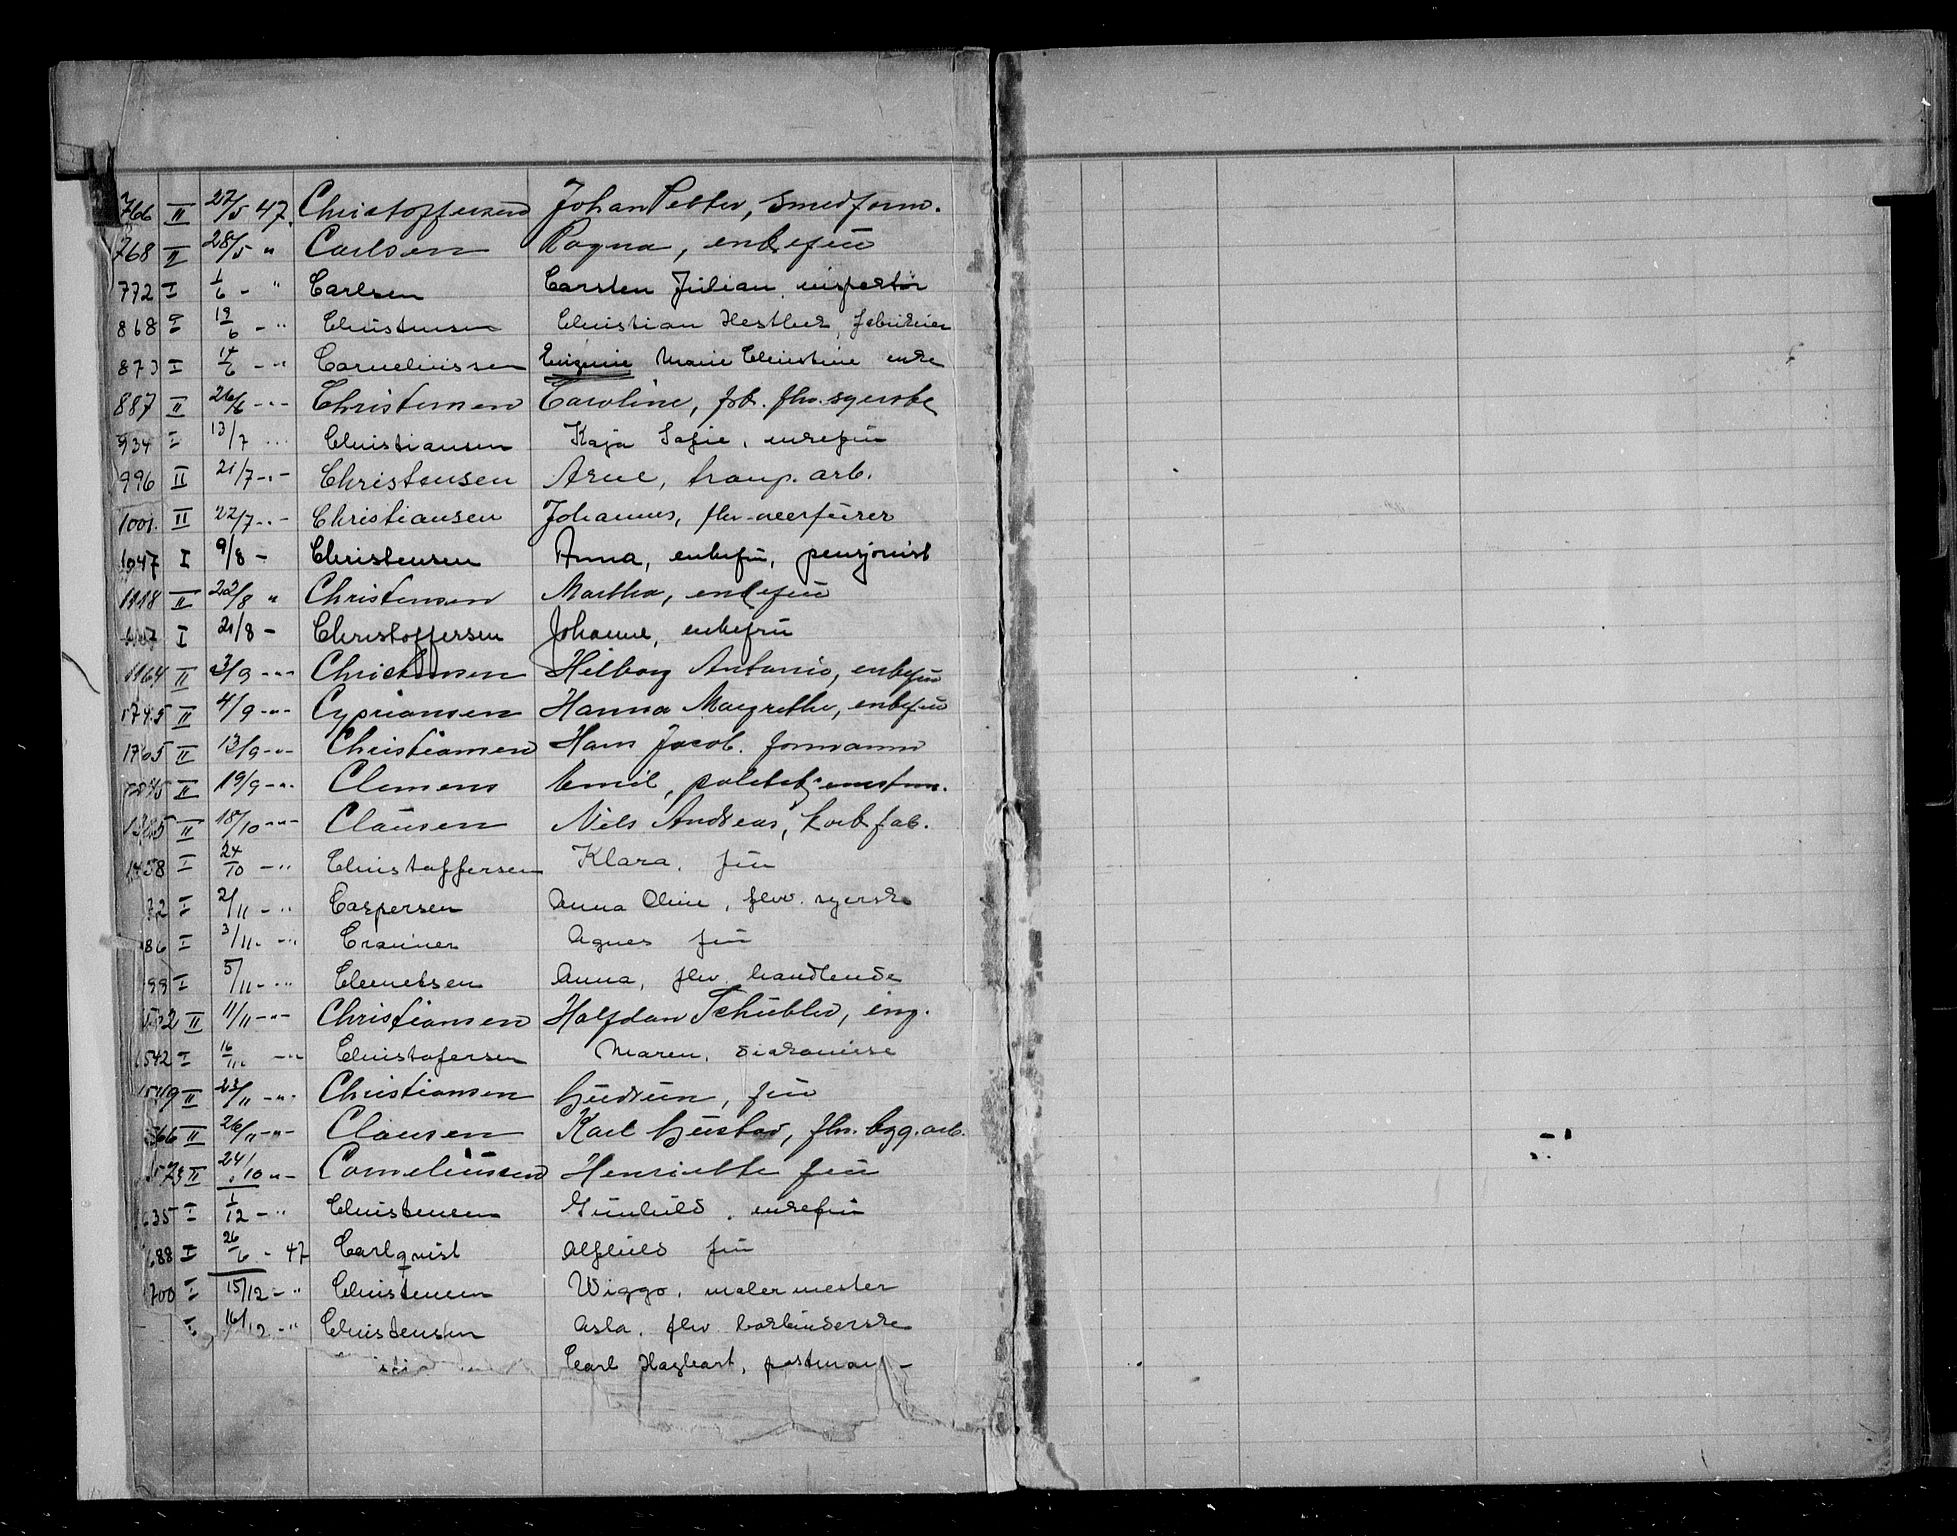 766 II 27/5 47. Christoffersen Johan Petter, smedform.
768 II 28/5 " Carlsen Ragna, enkefru
772 I 1/6 - " Carlsen Carsten Julian, inspektør
868 I 19/6 - " Christensen Christian Hestbek, fabrikeier
873 I 14/6 - " Corneliussen Eugenie Marie Christine enke
887 II 26/6 - " - Christensen Caroline, frk. fhv. syerske
934 I 13/7 Christiansen Kaja Sofie, enkefru
996 II 21/7 - " - Christensen Arne, transp. arb.
1001. II 22/7 - " - Christiansen Johannes, fhv.
1047 I 9/8 - Christensen Anna, enkefru, pensjonist
1118 II 22/8 " Christensen Martha, enkefru
I 21/8 - Christoffersen Johanne, enkefru
1164 II 3/9 - " - Christensen Hilborg Antonie, enkefru
II 4/9 - " - Cypriansen Hanna Margrethe, enkefru
II 13/9 - " - Christiansen Hans Jacob. formann
II 19/9 - " - Clemens Emil, politibetj.
II 18/10 - " - Clausen Niels Andreas, fab.
1458 I 24/10 - " Christoffersen Klara, fru
72 I 2/11 - " Caspersen Anna Oline, fhv. syerske
86 I 3/11 - " Cramer Agnes fru
99 I 5/11 - " Clemetsen Anna, fhv. handlende
II 11/11 - " - Christiansen Halfdan Schübler, ing.
1542 I 16/11 - " Christofersen Maren, diakonisse
1549 II 23/11 - " - Christiansen Gudrun, fru
566 II 26/11 - " - Clausen Karl Gustav, fhv. bygg.arb.
1573 II 24/10 " - Corneliussen Henriette fru
1635 I 1/12 - " Christensen Gunhild, enkefru
688 I 26/6 - 47 Carlquist Alfhild fru
1700 I 15/12 - " Christensen Wiggo, malermester
I 16/12 - " Christensen Asla, fhv. bokbinderske
Carl Hagbart, postmann